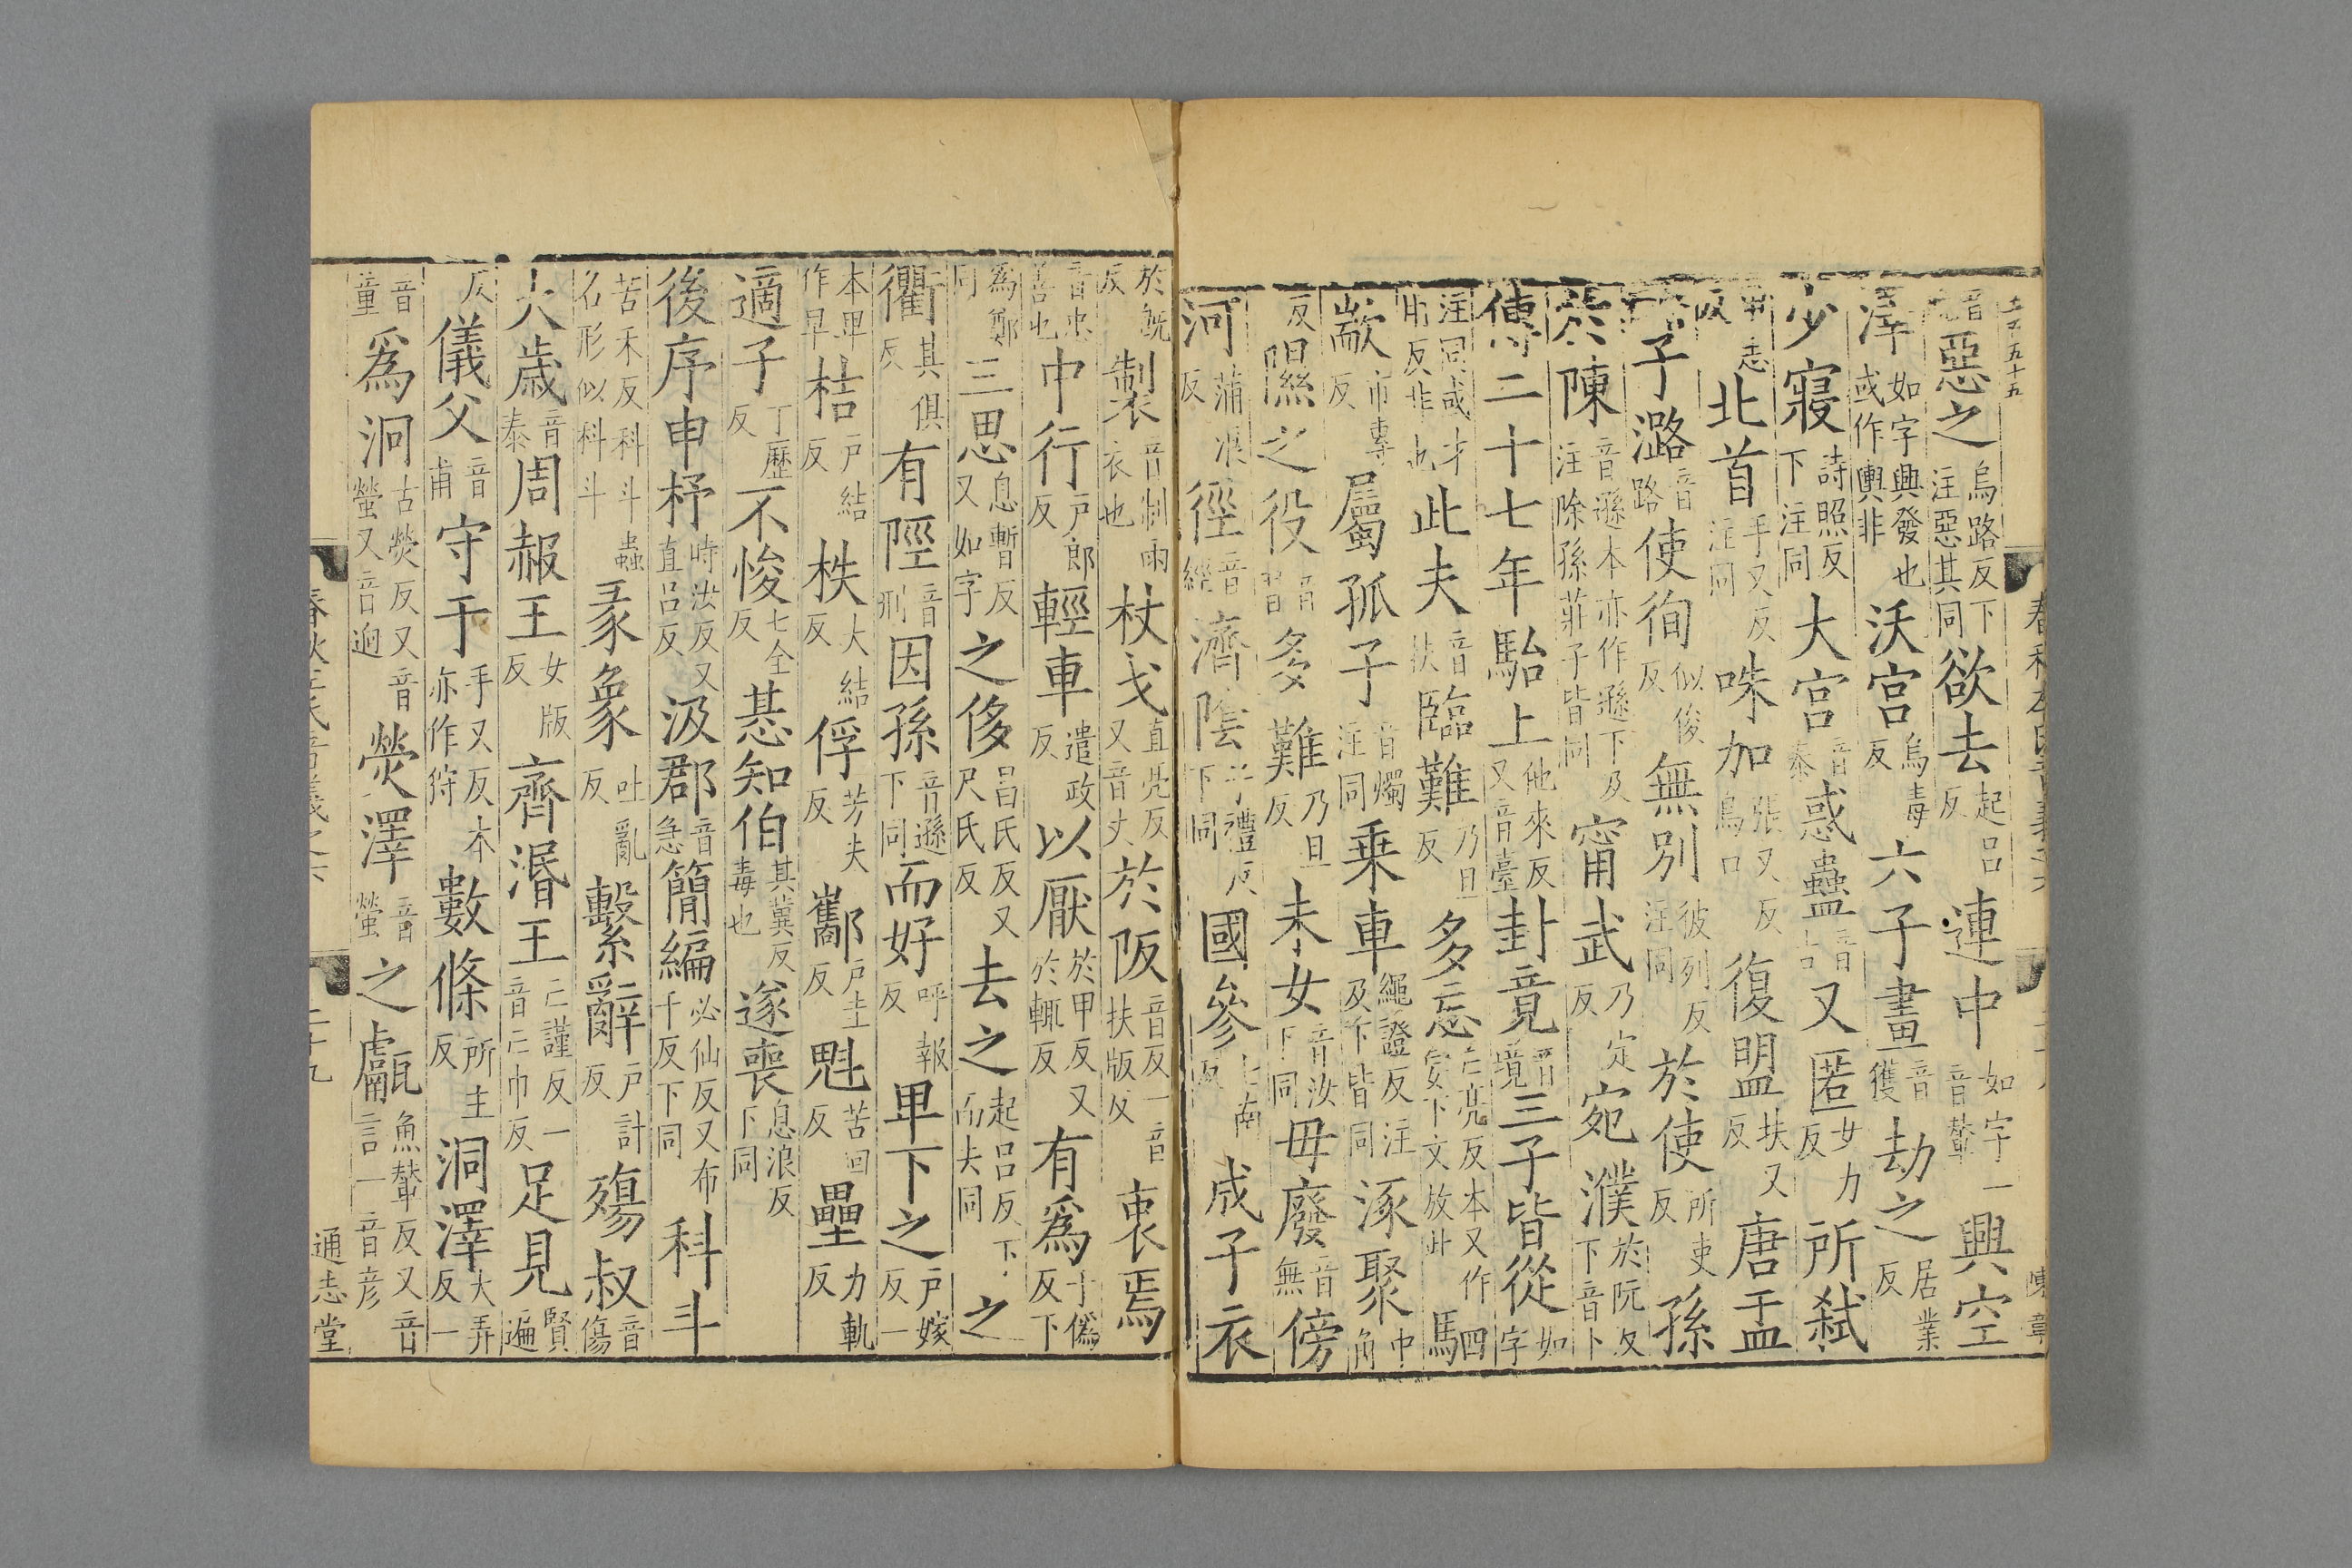 惡之烏路反下注惡其同欲去起呂反連中如字一音輦興空
澤如字興發也或作輿非沃宮烏毒反六子畫音獲劫之居業反
少寢詩照反下注同大宮音泰惑蠱音古又匿女力反所弒
北首手又反注同咮加張又反烏口復盟扶又反唐盂
子潞音路使徇似俊反無別彼列反注同於使所吏反孫
於陳音遜本亦作遜下及注除孫莊子皆同甯武乃定反宛濮於阮反下音卜
傳二十七年駘上他來反又音臺封竟音境三子皆從如字
注同咸才此夫音扶臨難乃旦反多忘亡亮反本又作妄下文放此四馬
歂市專反屬孤子音燭注同乗車繩證反注及下皆同涿聚中角
反隰之役音習多難乃旦反未女音汝下同毋廢音無傍
河蒲浪反徑音經濟陰子禮反下同國參七南反成子衣
於旣反製音制雨衣也杖戈直亮反又音丈於阪音反一音扶版反衷焉
音忠善也中行戶郎反輕車遣政反以厭於甲反又於輒反有爲于僞反下
爲鄭同三思息暫反又如字之侈昌氏反又尺氏反去之起呂反下而去同之
衢其俱反有陘音刑因孫音遜下同而好呼報反卑下之戶嫁反一
本卑作早反桔戶結反柣大結反俘芳夫反酅戶圭反魁苦回反壘力軌反
適子丁歷反不悛七全反惎知伯其冀反毒也遂喪息浪反下同
後序申杼時汝反又直呂反汲郡音急簡編必仙反又布千反下同科斗
苦禾反科斗蟲名形似科斗彖象吐亂反繫辭戶計反殤叔音傷
大歲音泰周赧王女版反齊湣王亡謹反一音亡巾反足見賢遍
反儀父音甫守于手又反本亦作狩數條所主反洞澤大弄反一
音童爲泂古熒反又音螢又音迥熒澤音螢之甗魚輦反又音言一音彥
通志堂